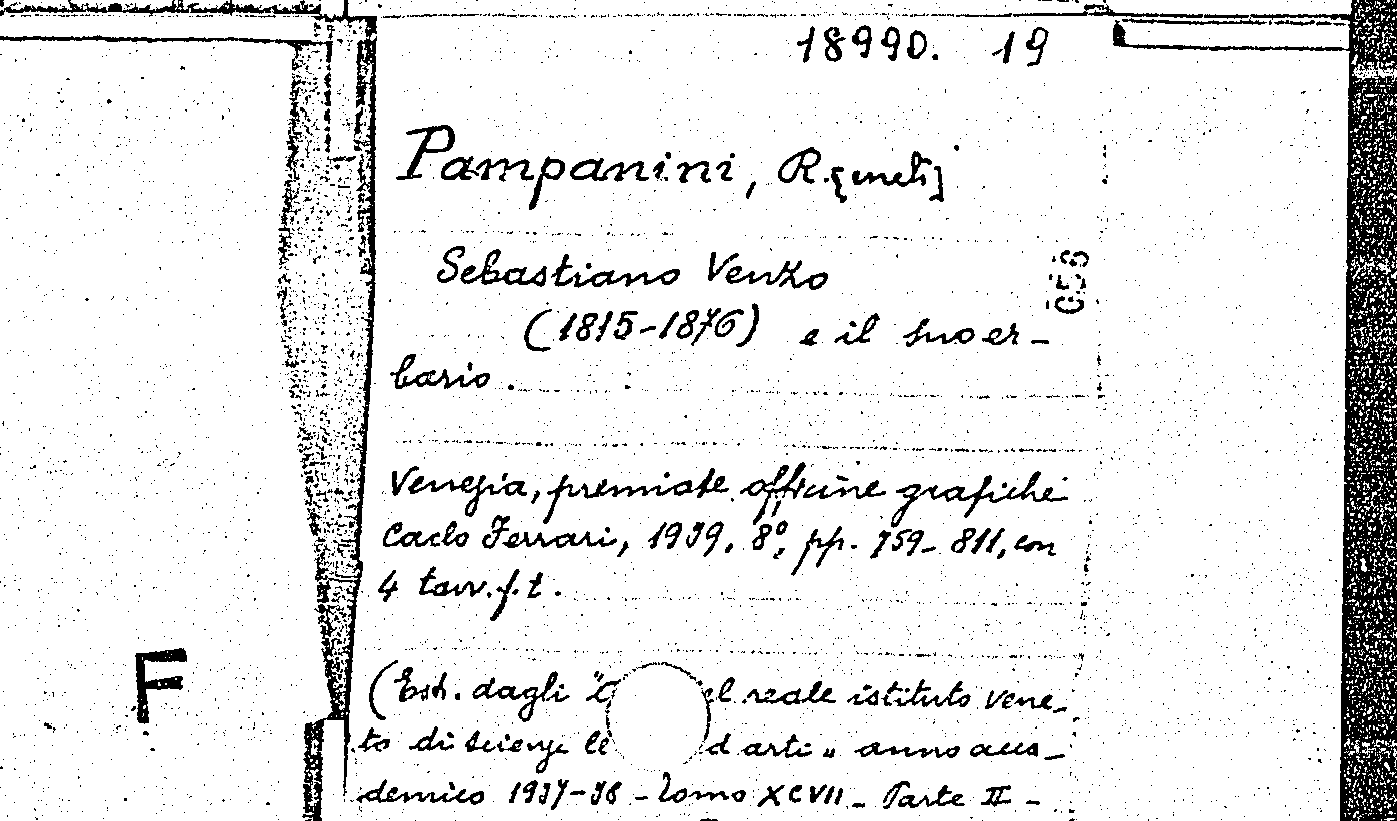 18990. 19
Pampanini, R.[enato]
G53
Sebastiano Venzo
(1815-1876) e il suo er-
bario.
Venezia, premiate officine grafiche
Carlo Ferrari, 1939, 8°, pp. 759-811, con
4 tavv. f. t.
F
(Estr. dagli el reale istituto vene-
to di scienze le d arti" anno acca-
demico 1937-38 - Tomo XCVII - Parte II -